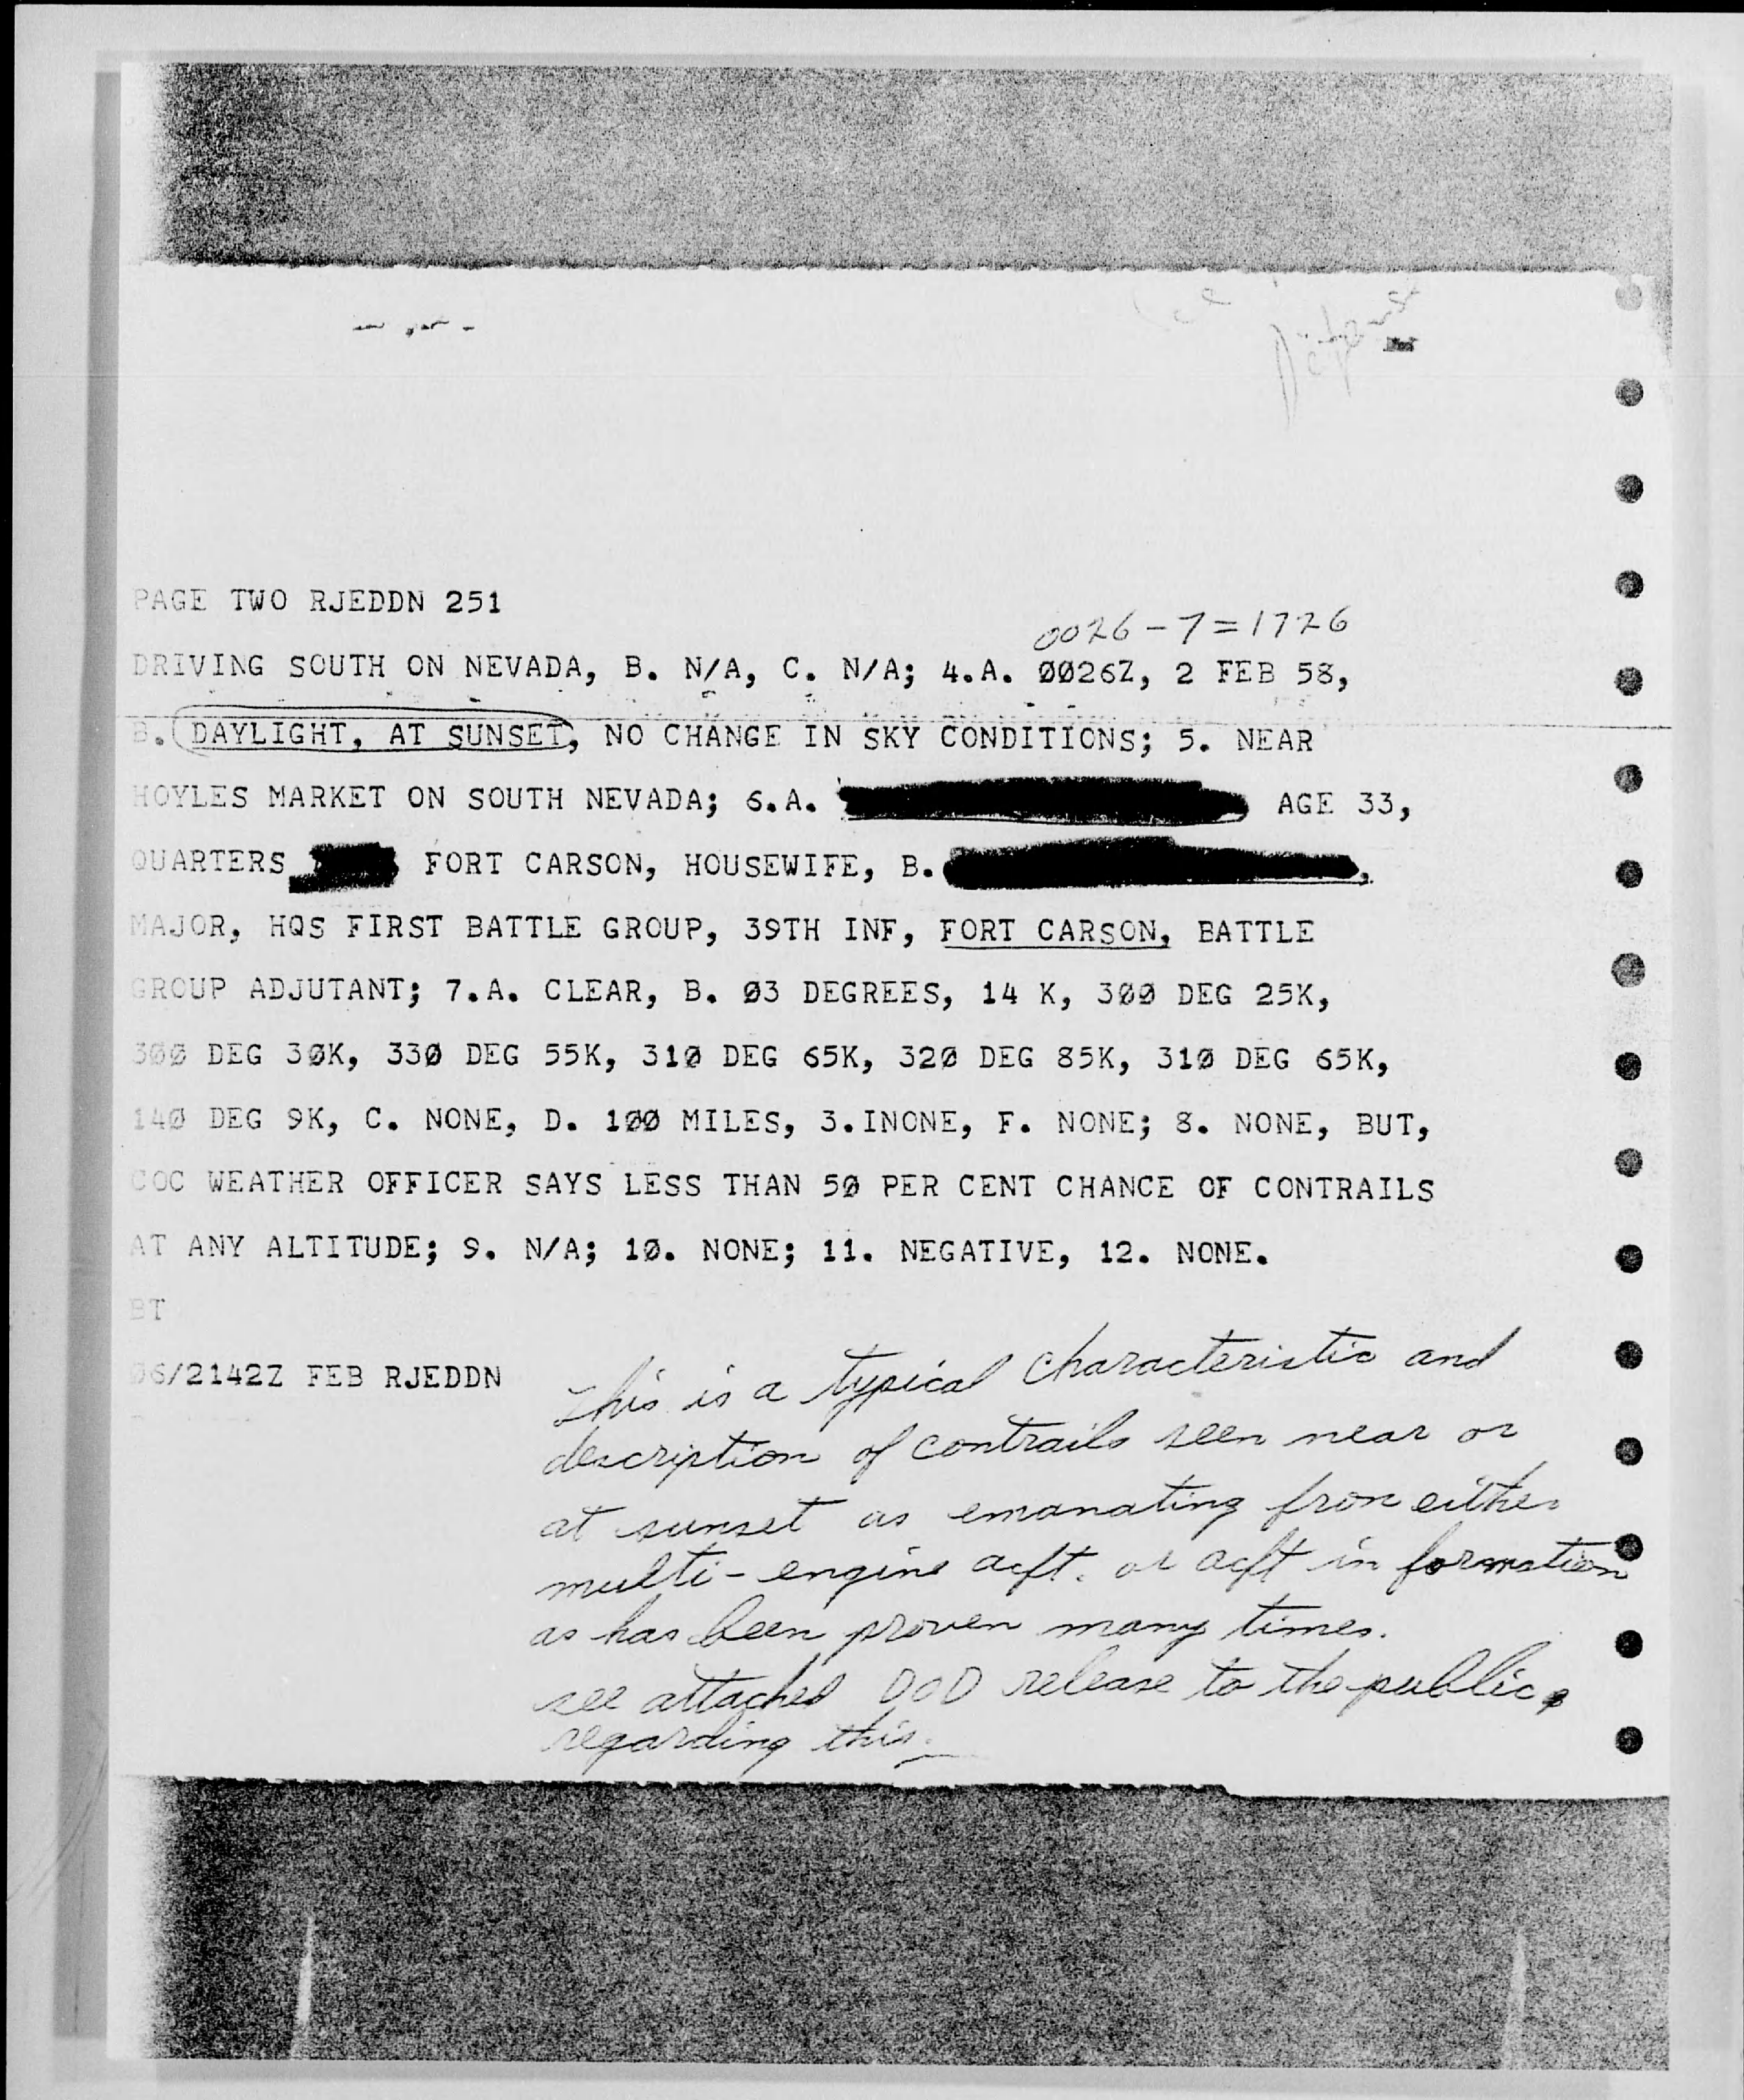 PAGE TWO RJEDDN 251
0026-7=1726
DRIVING SOUTH ON NEVADA, B. N/A, C. N/A; 4.A. 0026Z, 2 FEB 58,
B. DAYLIGHT, AT SUNSET, NO CHANGE IN SKY CONDITIONS; 5. NEAR
HOYLES MARKET ON SOUTH NEVADA; 6.A. AGE 33,
QUARTERS FORT CARSON, HOUSEWIFE, B. ,
MAJOR, HQS FIRST BATTLE GROUP, 39TH INF, FORT CARSON, BATTLE
GROUP ADJUTANT; 7.A. CLEAR, B. 03 DEGREES, 14 K, 300 DEG 25K,
300 DEG 30K, 330 DEG 55K, 310 DEG 65K, 320 DEG 85K, 310 DEG 65K,
140 DEG 9K, C. NONE, D. 100 MILES, 3.INONE, F. NONE; 8. NONE, BUT,
COC WEATHER OFFICER SAYS LESS THAN 50 PER CENT CHANCE OF CONTRAILS
AT ANY ALTITUDE; 9. N/A; 10. NONE; 11. NEGATIVE, 12. NONE.
BT
06/2142Z FEB RJEDDN
This is a typical characteristic and
description of contrails seen near or
at sunset as emanating from either
multi-engine acft. or acft in formation
as has been proven many times.
see attached DOD release to the public
regarding this.